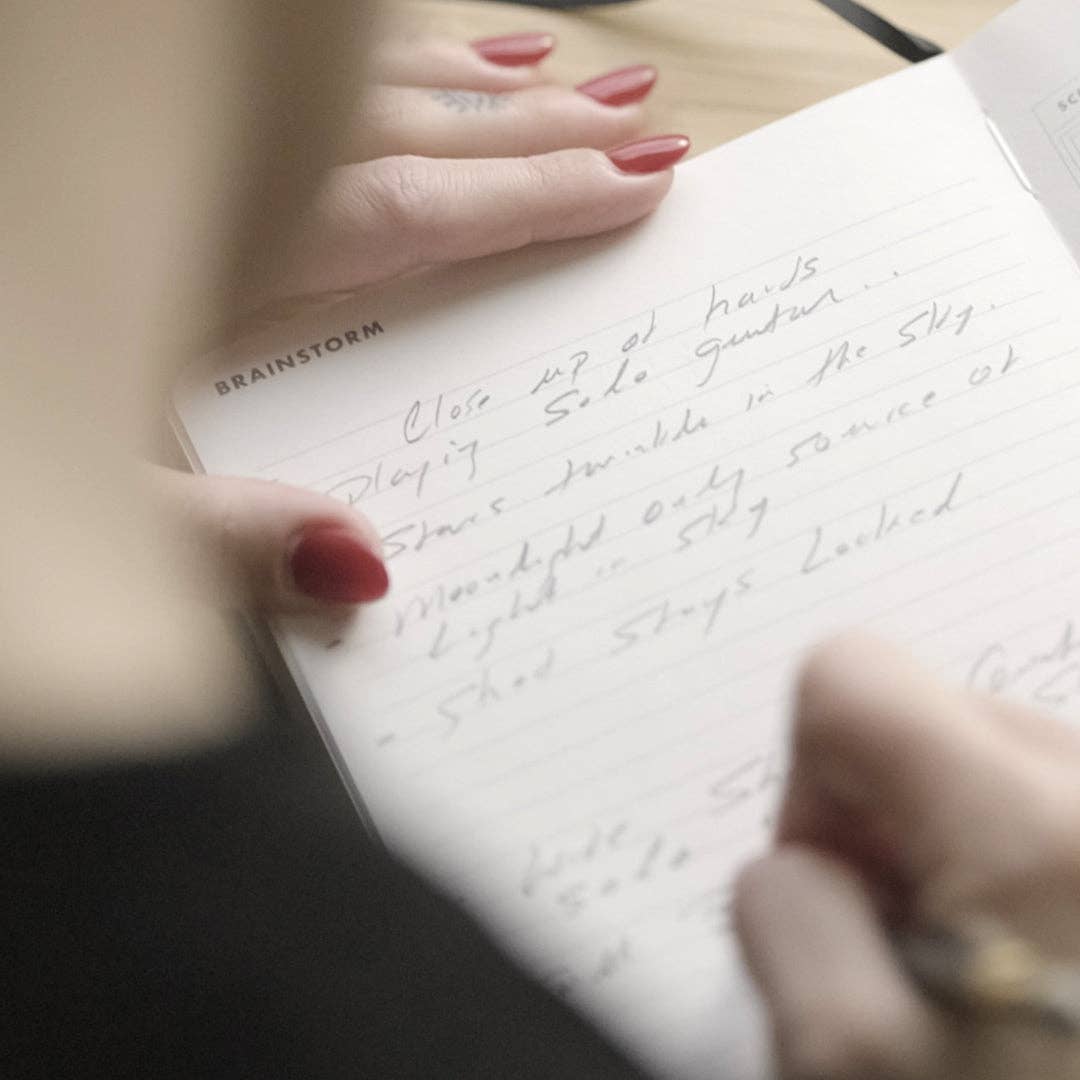 BRAINSTORM
Close up of hands
playing solo guitar...
Stars twinkle in the sky.
- Moonlight only source of
Light in sky
- Shot stays Locked
Wide
Solo